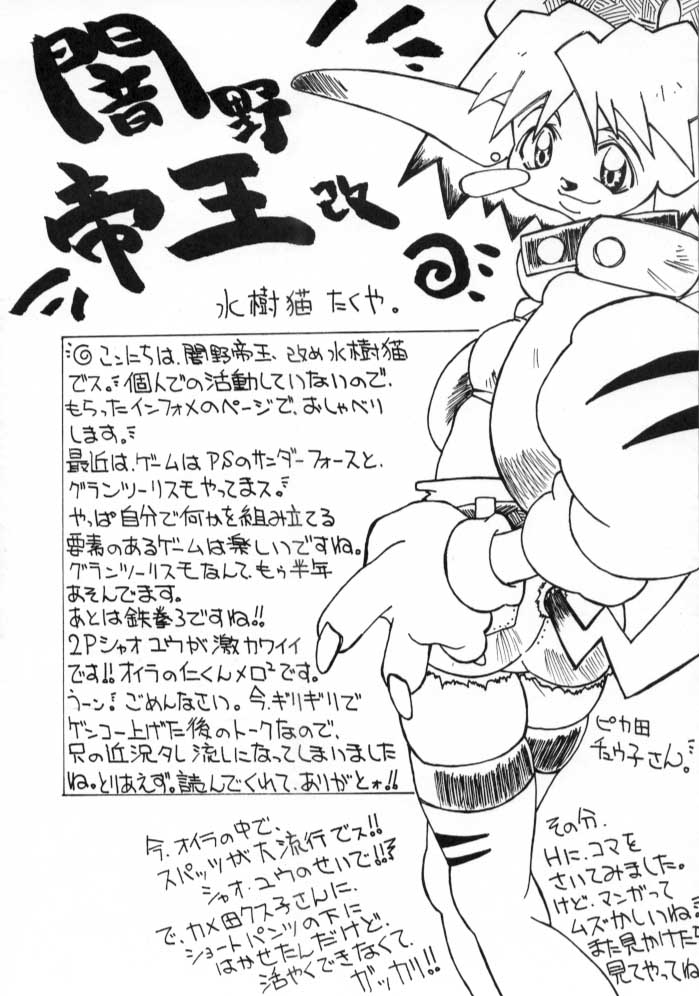 闇野
帝王改
水樹猫 たくや。
こンにちは、闇野帝王、改め水樹猫
でス。個人での活動していないので、
もらったインフォメのページで、おしゃべり
します。
最近は、ゲームは PSのサンダーフォースと、
グランツーリスモやってまス。
やっぱ自分で何かを組み立てる
要素のあるゲームは楽しいですね。
グランツーリスモなんて、もぅ半年
あそんでます。
あとは鉄拳3ですね!!
2Pシャオユウが激カワイイ
です!!オイラの仁くんメロ²です。
うーン!ごめんなさい。今、ギリギリで
ゲンコー上げた後のトークなので、
只の近況タレ流しになってしまいました
ね。とりあえず。読んでくれて、ありがとォ!!
ピカ田
チュウ子さん。
今、オイラの中で、
スパッツが大流行でス!!
シャオ・ユウのせいで!!
で、カメ田クス子さんに、
ショートパンツの下に
はかせたんだけど、
活やくできなくて、
ガッカリ!!
その分、
Hに、コマを
さいてみました。
けど、マンガって
ムズかしいね。
また見かけたら
見てやってね